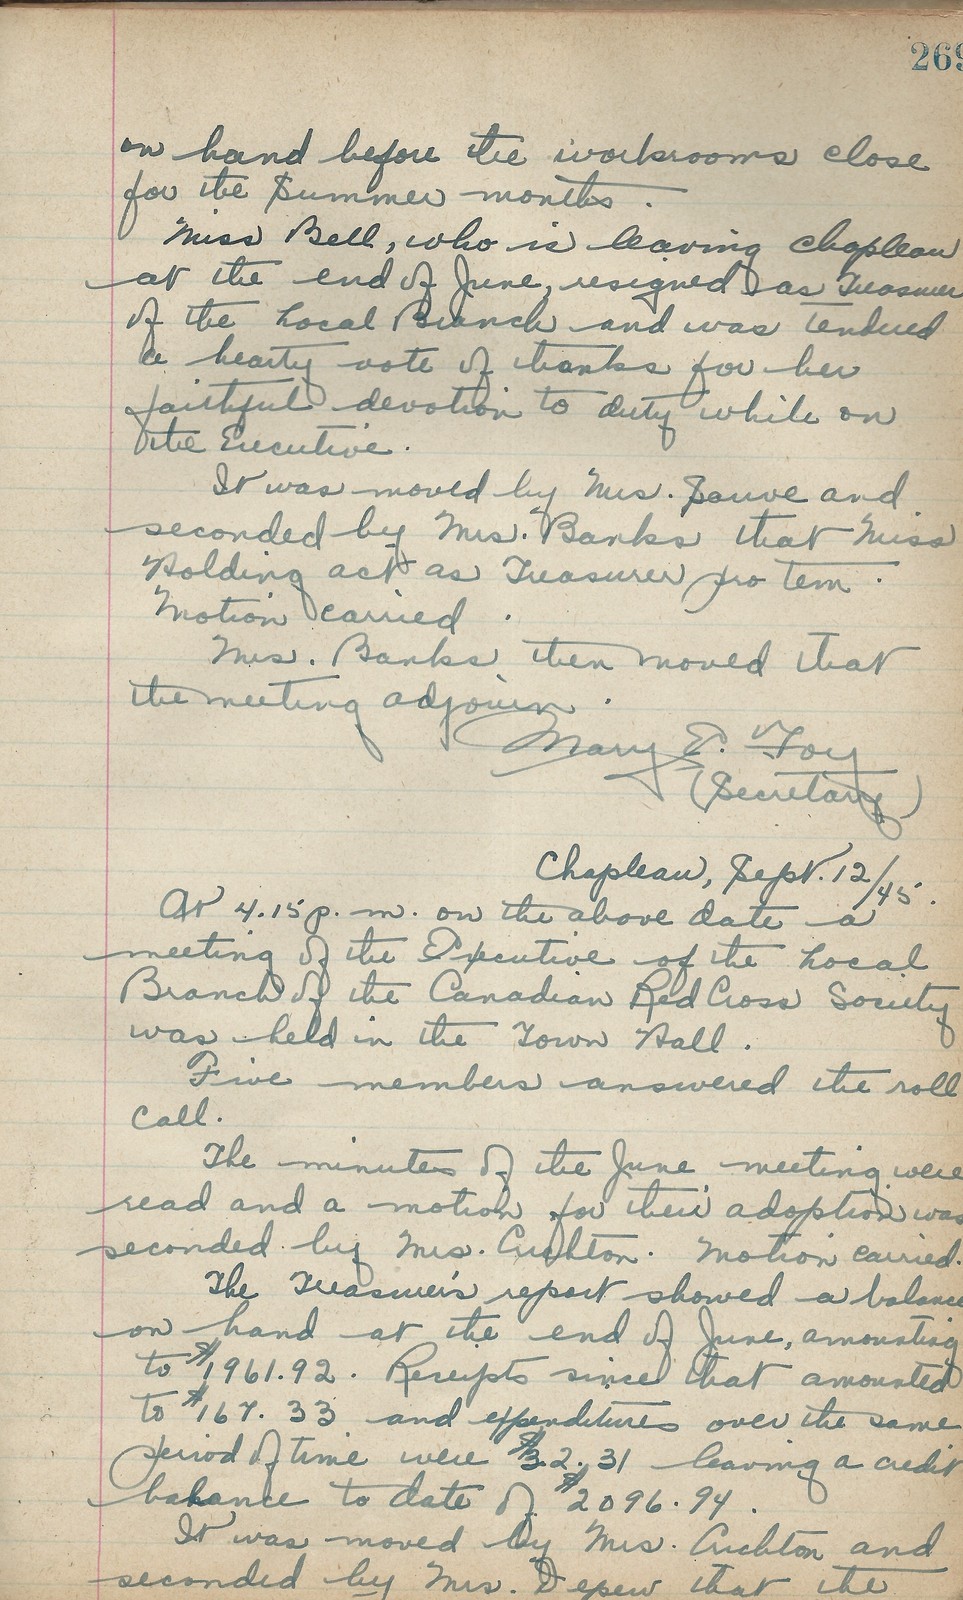 269
on hand before the workrooms close
for the Summer months.
Miss Bell, who is leaving Chapleau
at the end of June, resigned as Treasurer
of the Local Branch and was tendered
a hearty vote of thanks for her
faithful devotion to duty while on
the Executive.
It was moved by Mrs. Sauve and
seconded by Mrs. Banks that Miss
Holding act as Treasurer pro tem.
Motion carried.
Mrs. Banks then moved that
the meeting adjourn.
Mary E. Foy
(Secretary)
Chapleau, Sept. 12/45.
At 4.15 p.m. on the above date a
meeting of the Executive of the Local
Branch of the Canadian Red Cross Society
was held in the Town Hall.
Five members answered the roll
call.
The minutes of the June meeting were
read and a motion for their adoption was
seconded by Mrs. Crichton. Motion carried.
The Treasurer's report showed a balance
on hand at the end of June, amounting
to $1961.92. Receipts since that amounted
to $167.33 and expenditures over the same
period of time were $32.31 leaving a credit
balance to date of $2096.94.
It was moved by Mrs. Crichton and
seconded by Mrs. Depew that the